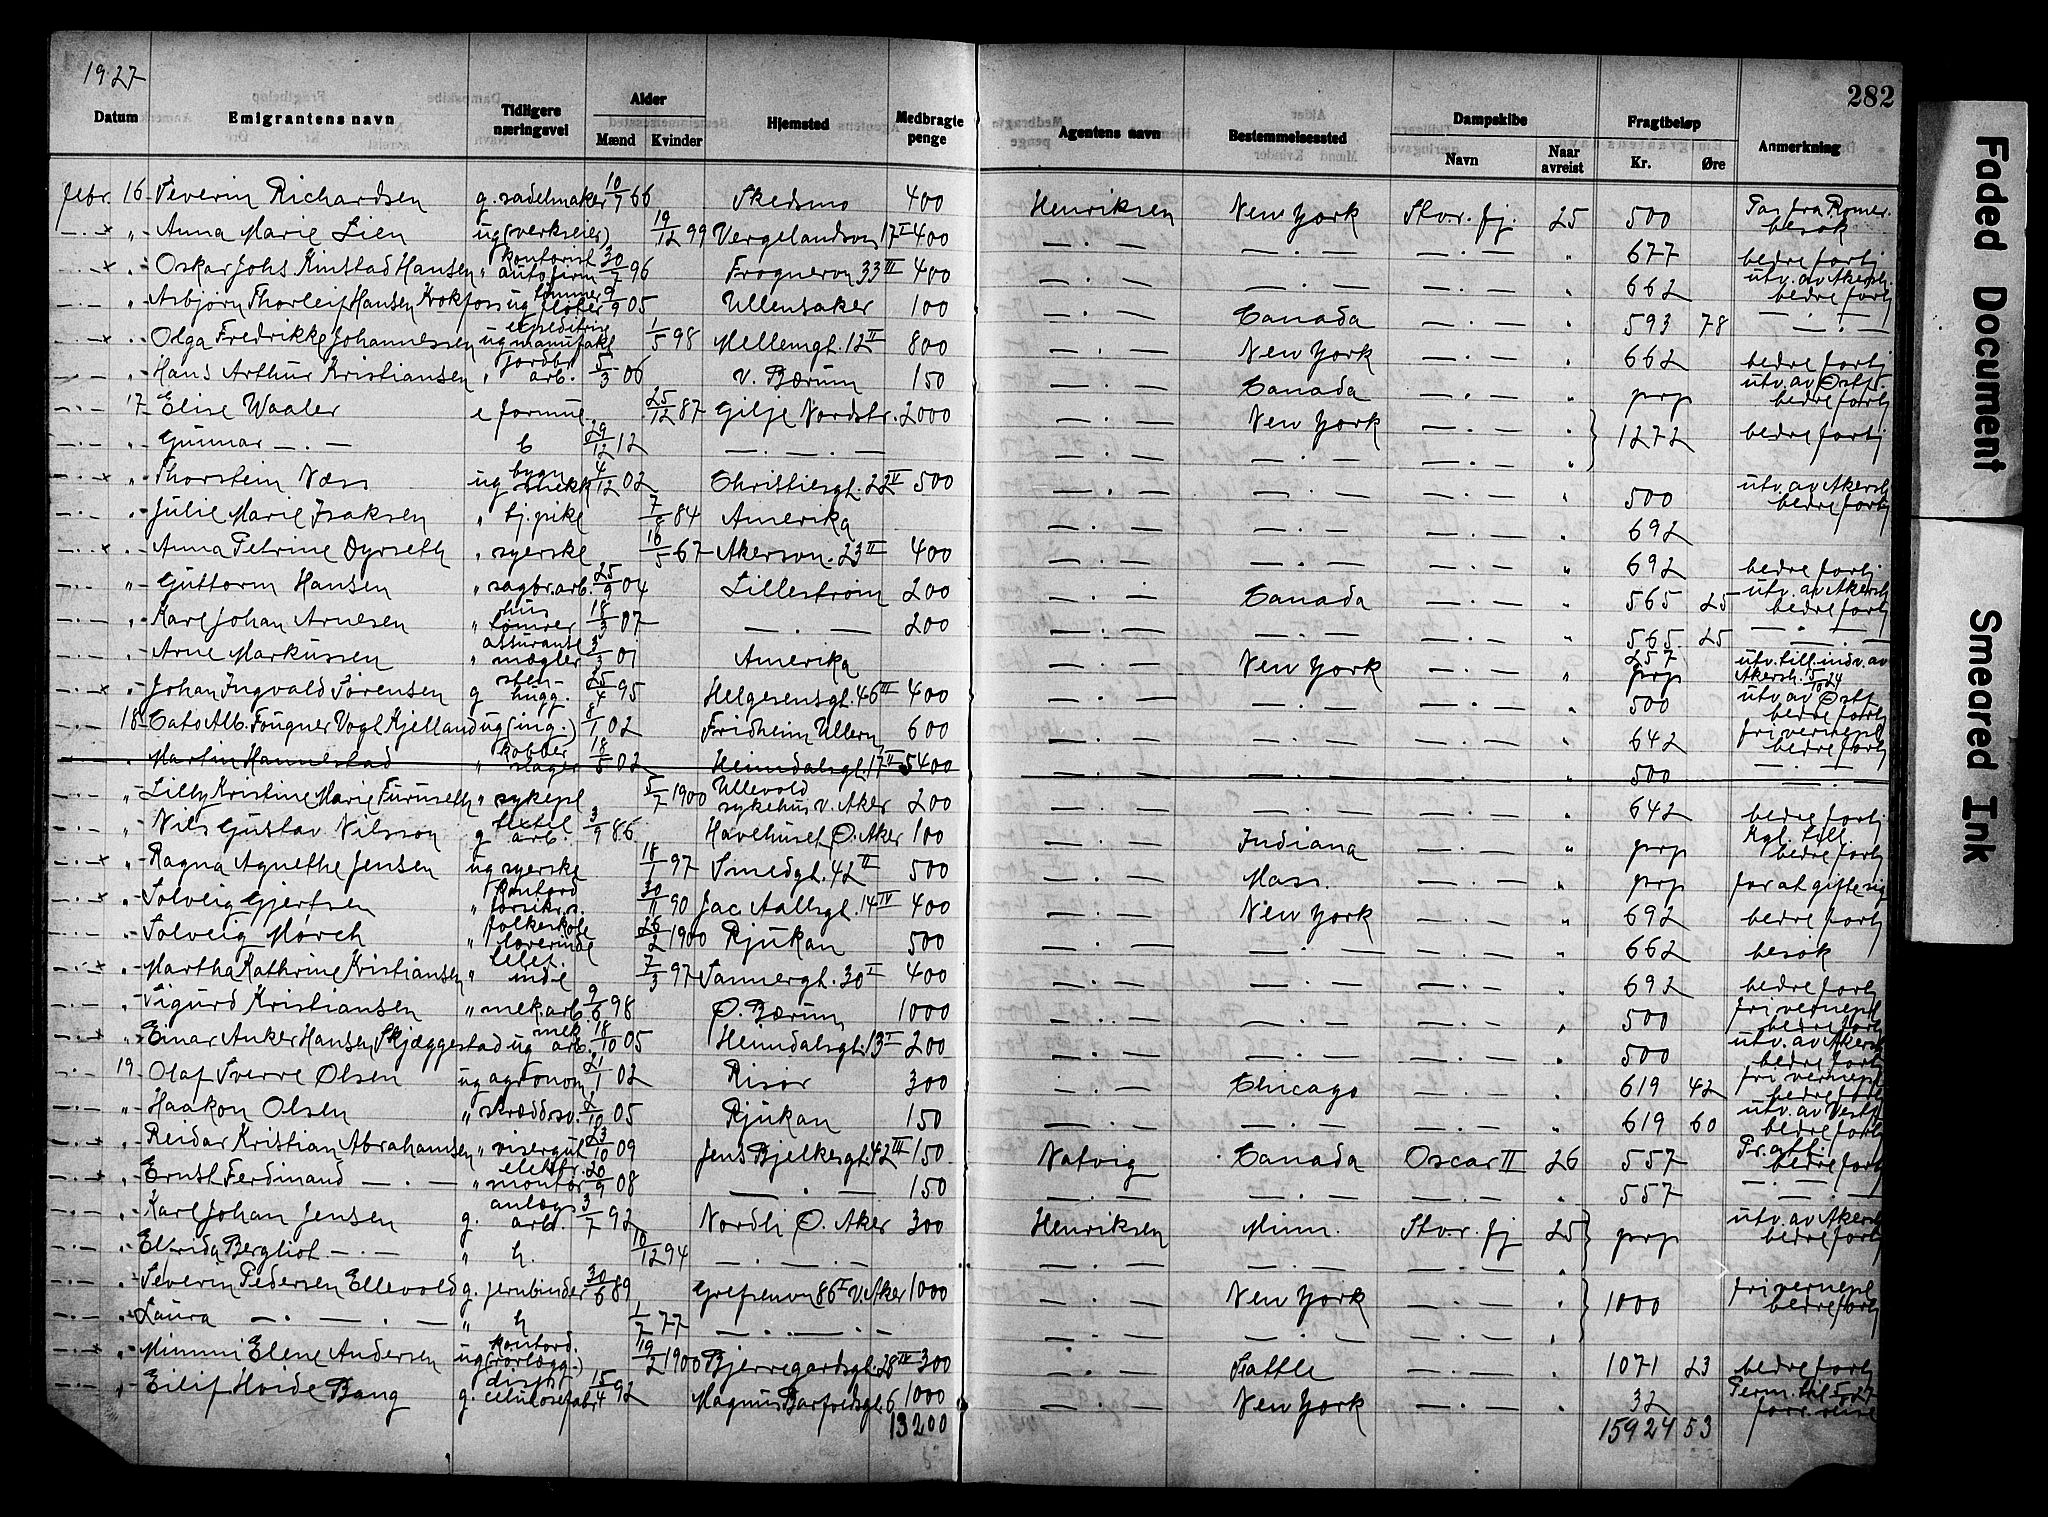 1927
282
Datum Emigrantens navn Tidligere næringsvei Alder Mænd Kvinder Hjemsted Medbragte penge Agentens navn Bestemmelsessted Dampskibe Navn Naar avreist Fragtbeløp Kr. Øre Anmerkning
febr. 16 Severin Richardsen g. sadelmaker 10/7 66 Skedsmo 400 Henriksen New York Stvr. fj. 25 500 besøk
" Anna Marie Lien ug (verkseier) 19/12 99 Vergelandsvn 17 I 400 — . — — . — — . — " 677 bedre forhj
× " Oskar Johs Kinstad Hansen " kontorist autofirm 30/7 96 Frognervn 33 III 400 — . — — . — — . — " 662 utv. av Akersh. bedre forhj
" Asbjørn Thorleif Hansen Krokfoss ug tømmerfløter 9/9 05 Ullensaker 100 — . — Canada — . — " 593 78 — . —
× " Olga Fredrikke Johannessen ug expeditrise manufakt 1/5 98 Mellemgt. 12 II 800 — . — New York — . — " 662 bedre forhj
" Hans Arthur Kristiansen " jordbr arb. 5/3 06 V. Bærum 150 — . — Canada — . — " prp utv. av Østf. bedre forhj
17 Elise Waaler e formue 25/12 87 Gilje Nordstr. 2000 — . — New York — . — " 1272 bedre forhj
" Gunnar — . — b 29/12 12 — . — . — — . — — . — — . — "
× " Thorstein Næss ug bygn snekk 4/12 02 Christiesgt. 22 IV 500 — . — — . — — . — " 500 utv. av Akersh bedre forhj
" Julie Marie Isaksen " tj. pike 7/8 84 Amerika — . — — . — — . — 692
× " Anna Petrine Dyrseth " syerske 16/5 67 Akersvn. 23 II 400 — . — — . — — . — " 692 bedre forhj
" Guttorm Hansen " sagbr.arb. 25/9 04 Lillestrøm 200 — . — Canada — . — " 565 25 utv. av Akersh bedre forhj
" Karl Johan Arnesen " hus tømrer 18/3 07 — . — 200 — . — — . — — . — " 565 25 — . —
" Arne Markussen " assuranse mægler 3/3 01 Amerika — . — New York — . — 257 prp utv. till. indv. av Akersh. 5/10 24
× " Johan Ingvald Sørensen g stenhugg. 25/4 95 Helgesensgt. 46 III 400 — . — — . — — . — " 500 utv. av Østf bedre forhj
18 Cato Alb. Fougner Vogt Kjelland ug (ing.) 8/1 02 Fridheim Ullern 600 — . — — . — — . — " 642 fri vernepl bedre forhj
" Martin Hannestad " kobberslager 18/5 02 Heimdalsgt. 17 II 400 — . — — . — — . — " 500 — . —
" Lilly Kristine Marie Furuseth " sykepl 5/7 1900 Ullevold sykehus v. Aker 200 — . — — . — — . — " 642 bedre forhj
" Nils Gustav Nilsson g textil arb. 3/9 86 Havehuset Ø. Aker 100 — . — Indiana — . — " prp Kgl. till. bedre forhj
× " Ragna Agnethe Jensen ug syerske 18/1 97 Smedgt. 42 II 500 — . — Mass. — . — " prp for at gifte sig
× " Solveig Gjertsen " kontord forsikr.s. 30/11 90 Jac Aallsgt. 14 IV 400 — . — New York — . — " 692 bedre forhj
" Solveig Mørch " folkeskole lærerinde 26/2 1900 Rjukan 500 — . — — . — — . — " 662 besøk
× " Martha Kathrine Kristiansen " telef. inde 7/3 97 Sannergt. 30 I 400 — . — — . — — . — " 692 bedre forhj
" Sigurd Kristiansen " mek. arb. 9/6 98 Ø. Bærum 1000 — . — — . — — . — " 500 fri vernepl bedre forhj
× " Einar Anker Hansen Skjæggestad ug mek. arb. 18/10 05 Heimdalsgt. 13 I 200 — . — — . — — . — " 500 utv. av Akersh bedre forhj
19 Olaf Sverre Olsen ug agronom 21/1 02 Risør 300 — . — Chicago — . — " 619 42 fri vernepl bedre forhj
" Haakon Olsen " skræddsv. /10 05 Rjukan 150 — . — — . — — . — " 619 60 utv. av Vestf bedre forhj
× " Reidar Kristian Abrahamsen " visergut 23/10 09 Jens Bjelkesgt. 42 III 150 Natvig Canada Oscar II 26 557 Pr. att. bedre forhj
× " Ernst Ferdinand — . — " elektr. montør 20/9 08 — . — 150 — . — — . — — . — " 557 — . —
" Karl Johan Jensen g. anlægs arb. 3/7 92 Nordli Ø. Aker 300 Henriksen Minn. Stvr. fj 25 prp utv. av Akersh bedre forhj
" Elfrida Bergliot — . — " h. 10/12 94 — . — . — — . — — . — — . — "
" Severin Pedersen Ellevold g. jernbinder 30/6 89 Grefsenvn 86 I V. Aker 1000 — . — New York — . — " 1000 fri vernepl bedre forhj
" Laura — . — . — " h 1/7 77 — . — . — — . — — . — — . — "
× " Mimmi Elene Andersen ug kontord. (rørlægg.) 19/2 1900 Bjerregardsgt. 28 IV 300 — . — Seattle — . — 1071 23 bedre forhj
" Eilif Hvide Bang g. disp. celulosefabr 15/4 92 Magnus Barfredsgt. 6 1000 — . — New York — . — 32 Perm. til 5/ 27 forr. reise
13200 15924 53
Faded Document
Smeared Ink